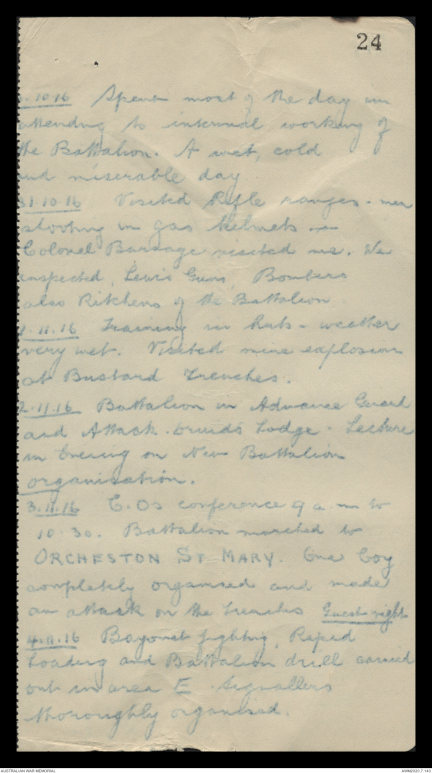 24
.10.16 Spent most of the day in
attending to internal working of
the Battalion. A wet, cold
and miserable day
31.10.16 Visited Rifle ranges - men
shooting in gas helmets.
Colonel visited us. We
inspected, Lewis Guns, Bombers
also Kitchens of the Battalion
1.11.16 Training in huts - weather
very wet. Visited mine explosion
at Bustard Trenches.
2.11.16 Battalion in Advance Guard
and Attack. Druids Lodge. Lecture
in Evening on New Battalion
organisation.
3.11.16 C.Os conference 9 a.m to
10.30. Battalion marched to
ORCHESTON ST MARY. One Coy
completely organised and made
an attack on the trenches Guest night
4.11.16 Bayonet fighting, Rapid
Loading and Battalion drill carried
out in area E. Signallers
thoroughly organised.
AUSTRALIAN WAR MEMORIAL